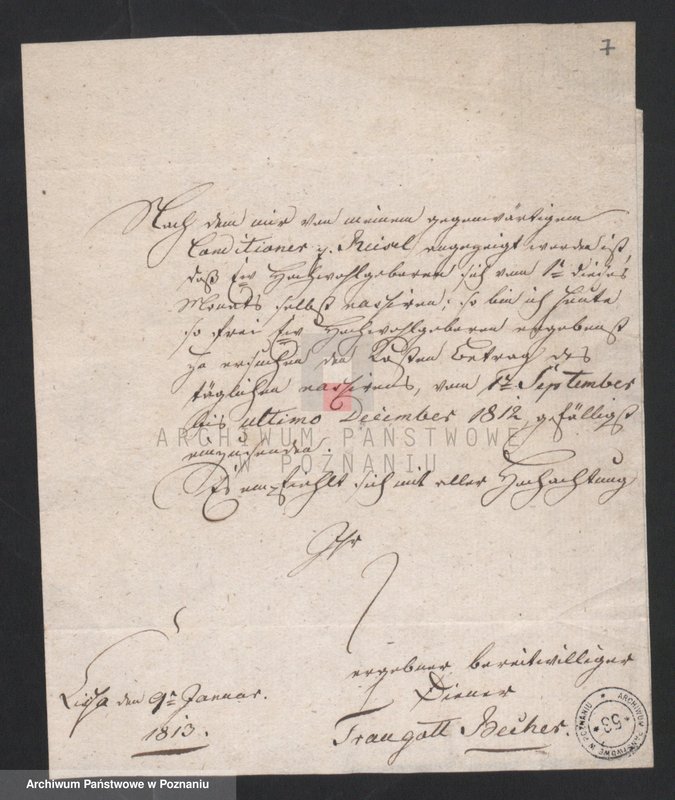 7
Nach dem mir von meinem gegenwärtigem
Conditioner p. Reisel angezeigt worden ist,
daß Ew Hochwohlgeboren sich vom 1n dieses
Monats selbst rassiren; so bin ich heute
so frei Ew Hochwohlgeboren ergebenst
zu ersuchen den Kosten Betrag des
täglichen rassirens, vom 1tn September
bis ultimo December 1812, gefälligst
einzusenden.
Es empfiehlt sich mit aller Hochachtung
Ihr
ergebner bereitwilliger
Diener
Traugott Becher.
Lissa den 9n Januar.
1813.
ARCHIWUM PAŃSTWOWE
W POZNANIU
ARCHIWUM PAŃSTWOWE W POZNANIU
53
Archiwum Państwowe w Poznaniu